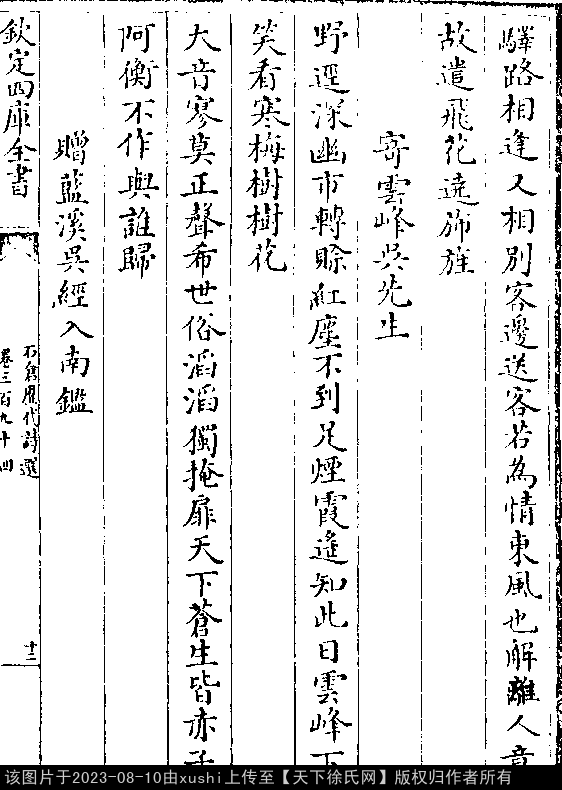 驛路相逢又相別客邊送客若為情東風也解離人意
故遣飛花遶斾旌
寄雲峰吳先生
野逕深幽市轉賒紅塵不到足煙霞遙知此日雲峰下
笑看寒梅樹樹花
大音寥莫正聲希世俗滔滔獨掩扉天下蒼生皆赤子
阿衡不作與誰歸
贈藍溪吳經入南鑑
欽定四庫全書
石倉歷代詩選
卷三百九十四
十三
该图片于2023-08-10由xushi上传至【天下徐氏网】版权归作者所有